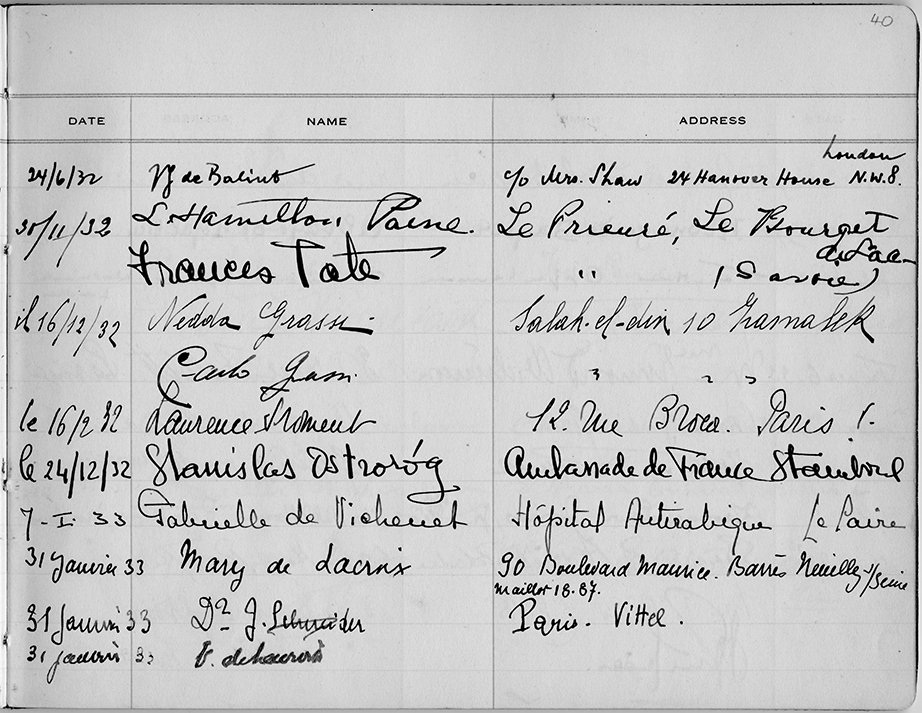 40
DATE NAME ADDRESS
London
24/6/32 de Balint c/o Mrs. Shaw 24 Hanover House N.W.8.
30/11/32 L. Hamilton Paine. Le Prieuré, Le Bourget
du Lac
Frances Tate " (Savoie)
il 16/12/32 Nedda Grassi Salah-el-din 10 Zamalek
Carlo Grassi " " "
le 16/2 32 Laurence 12. rue Broca. Paris
le 24/12/32 Stanislas Ostroróg Ambassade de France Stamboul
7-I-33 Gabrielle de Hôpital Antirabique Le Caire
31 Janvier 33 Mary de Lacroix 90 Boulevard Maurice. Barrès Neuilly s/Seine
Maillot 18.87.
31 Janvier 33 Dr J. Paris. Vittel.
31 janvier 33